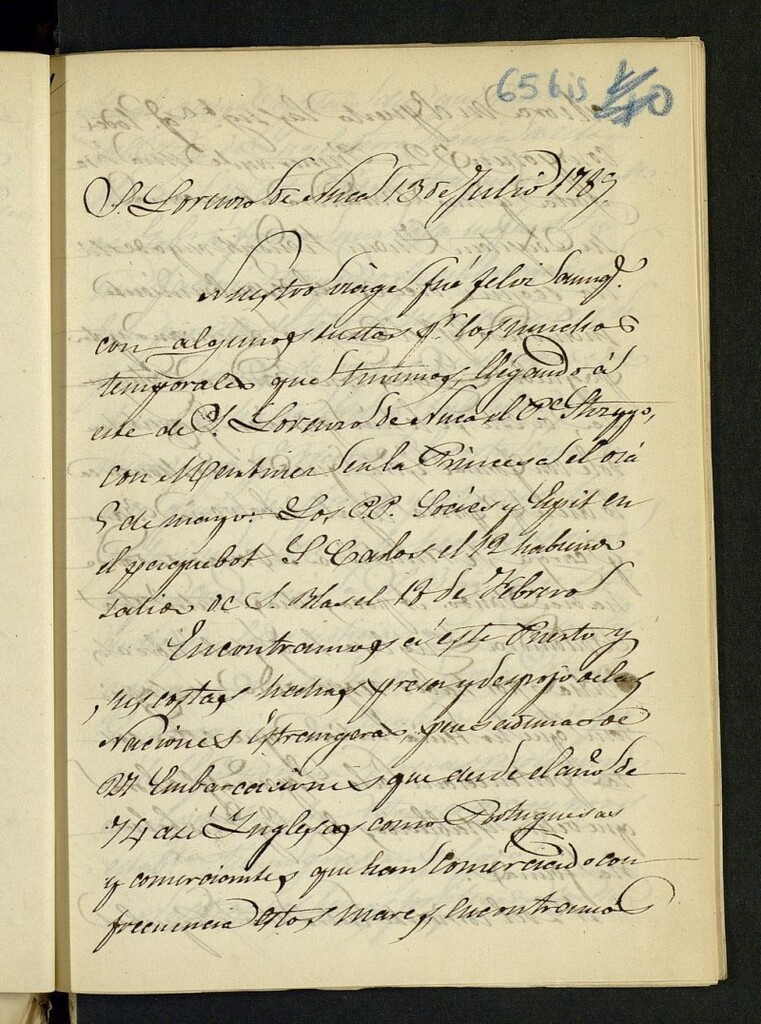 65 bis
S. Lorenzo de Nuca 13 de Julio 1789
Nuestro viage fué feliz aunq.
con algunos sustos pr. los muchos
temporales que tuvimos, llegando á
este de S. Lorenzo de Nuca el Pe.
con Martinez en la Princesa el día
5 de mayo. Los P.P. Socies y Espit en
el paquebot S Carlos el 12 habiendo
salido de S. Blas el 18 de Febrero
Encontramos á este Puerto y
sus costas hechas presa y despojo de las
Naciones Estrangeras, pues á mas de
27 Embarcaciones que desde el año de
74 así Inglesas como Portuguesas
y comerciantes que han comerciado con
frecuencia estos mares, encontramos